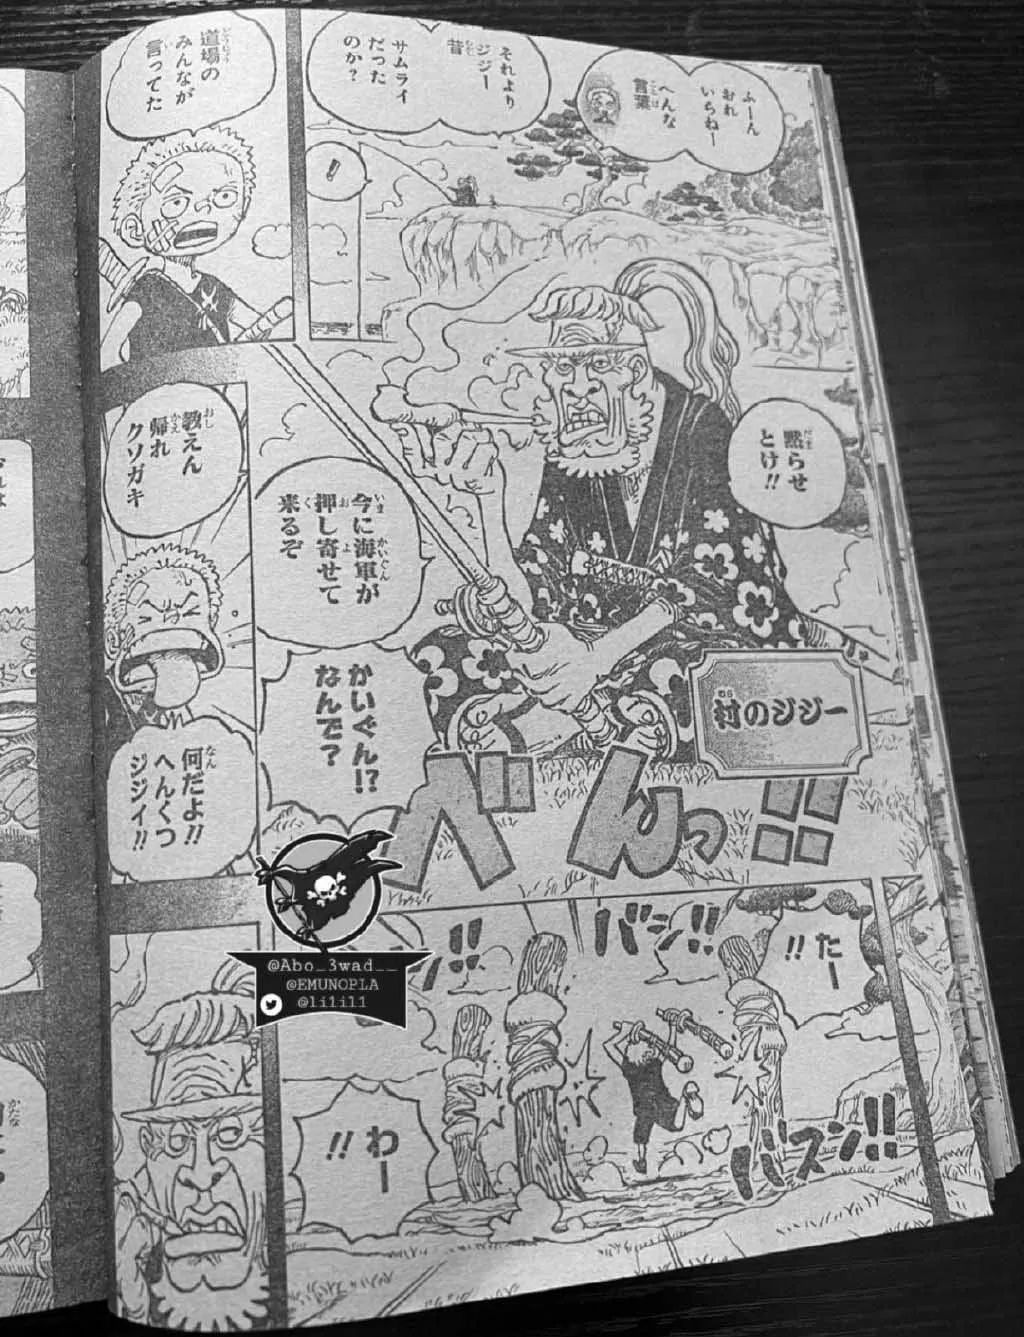 ふーん
おれ
いらねー
へんな
言葉
それより
ジジー
昔
サムライ
だった
のか？
！
道場の
みんなが
言ってた
黙らせ
とけ!!
村のジジー
べんっ!!
今に海軍が
押し寄せて
来るぞ
かいぐん!?
なんで？
教えん
帰れ
クソガキ
何だよ!!
へんくつ
ジジイ!!
たー
!!
バシ!!
バスン!!
わー
!!
@Abo_3wad__
@EMUNOPLA
@li1il1